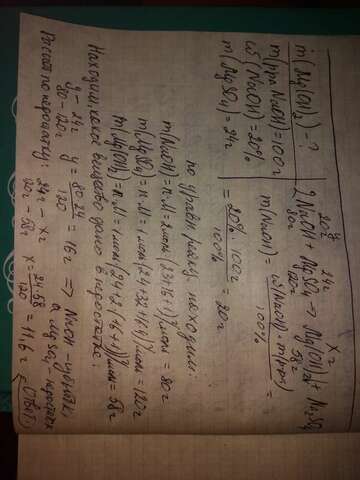 m(Mg(OH)₂) - ?
m(р-ра NaOH) = 100г
ω(NaOH) = 20%
m(MgSO₄) = 24г
20г y 24г x г
2NaOH + MgSO₄ → Mg(OH)₂ + Na₂SO₄
80г 120г 58г
m(NaOH) = ω(NaOH)·m(р-ра) / 100% =
= 20%·100г / 100% = 20г
по уравн. реакц. находим:
m(NaOH) = n·M = 2моль·(23+16+1)г/моль = 80г
m(MgSO₄) = n·M = 1моль·(24+32+16·4)г/моль = 120г
m(Mg(OH)₂) = n·M = 1моль·(24+2·(16+1))г/моль = 58г
Находим, какое вещество дано в недостатке:
y - 24г
80 - 120г
y = 80·24 / 120 = 16г ⇒ NaOH - избыток,
а MgSO₄ - недостаток
Расчет по недостатку:
24г - x г
120г - 58г
x = 24·58 / 120 = 11,6г (Ответ)